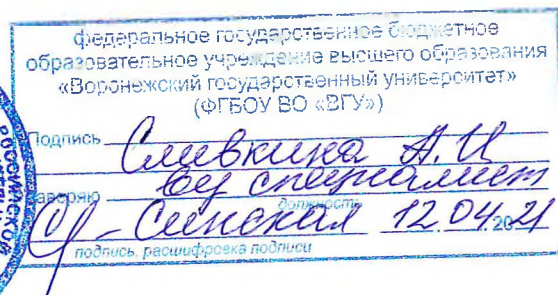 федеральное государственное бюджетное
образовательное учреждение высшего образования
«Воронежский государственный университет»
(ФГБОУ ВО «ВГУ»)
Подпись Сливкина А.И
заверяю вед специалист
должность
Синская 12.04.2021
подпись, расшифровка подписи